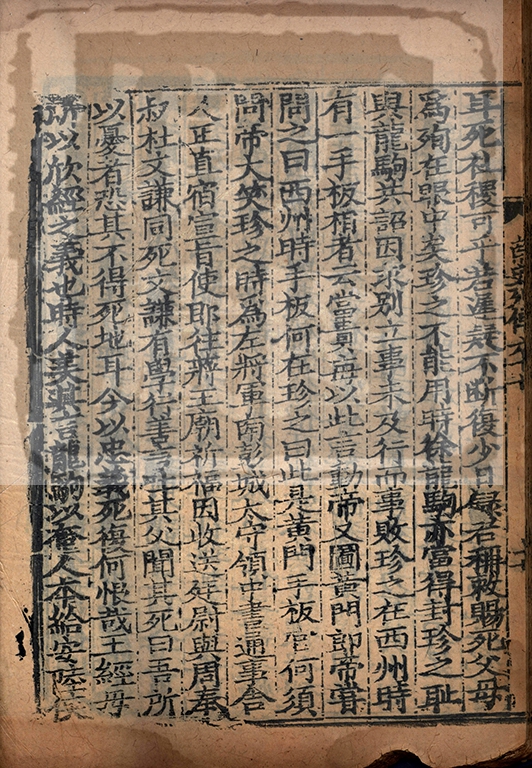 耳死社稷可乎若遲疑不斷復少日録君稱敕賜死父母
爲殉在眼中矣珍之不能用時徐龍駒亦當得封珍之恥
與龍駒共詔因求別立事未及行而事敗珍之在西州時
有一手板相者云當貴每以此言動帝又圖黃門郎帝嘗
問之曰西州時手板何在珍之曰此是黃門手板官何須
問帝大笑珍之時爲左將軍南彭城太守領中書通事舍
人正直宿宣旨使即往蔣王廟祈福因收送廷尉與周奉
叔杜文謙同死文謙有學行善言吐其父聞其死曰吾所
以憂者恐其不得死地耳今以忠義死復何恨哉王經母
所以欣經之義也時人美其言龍駒以奄人本給安陸侯